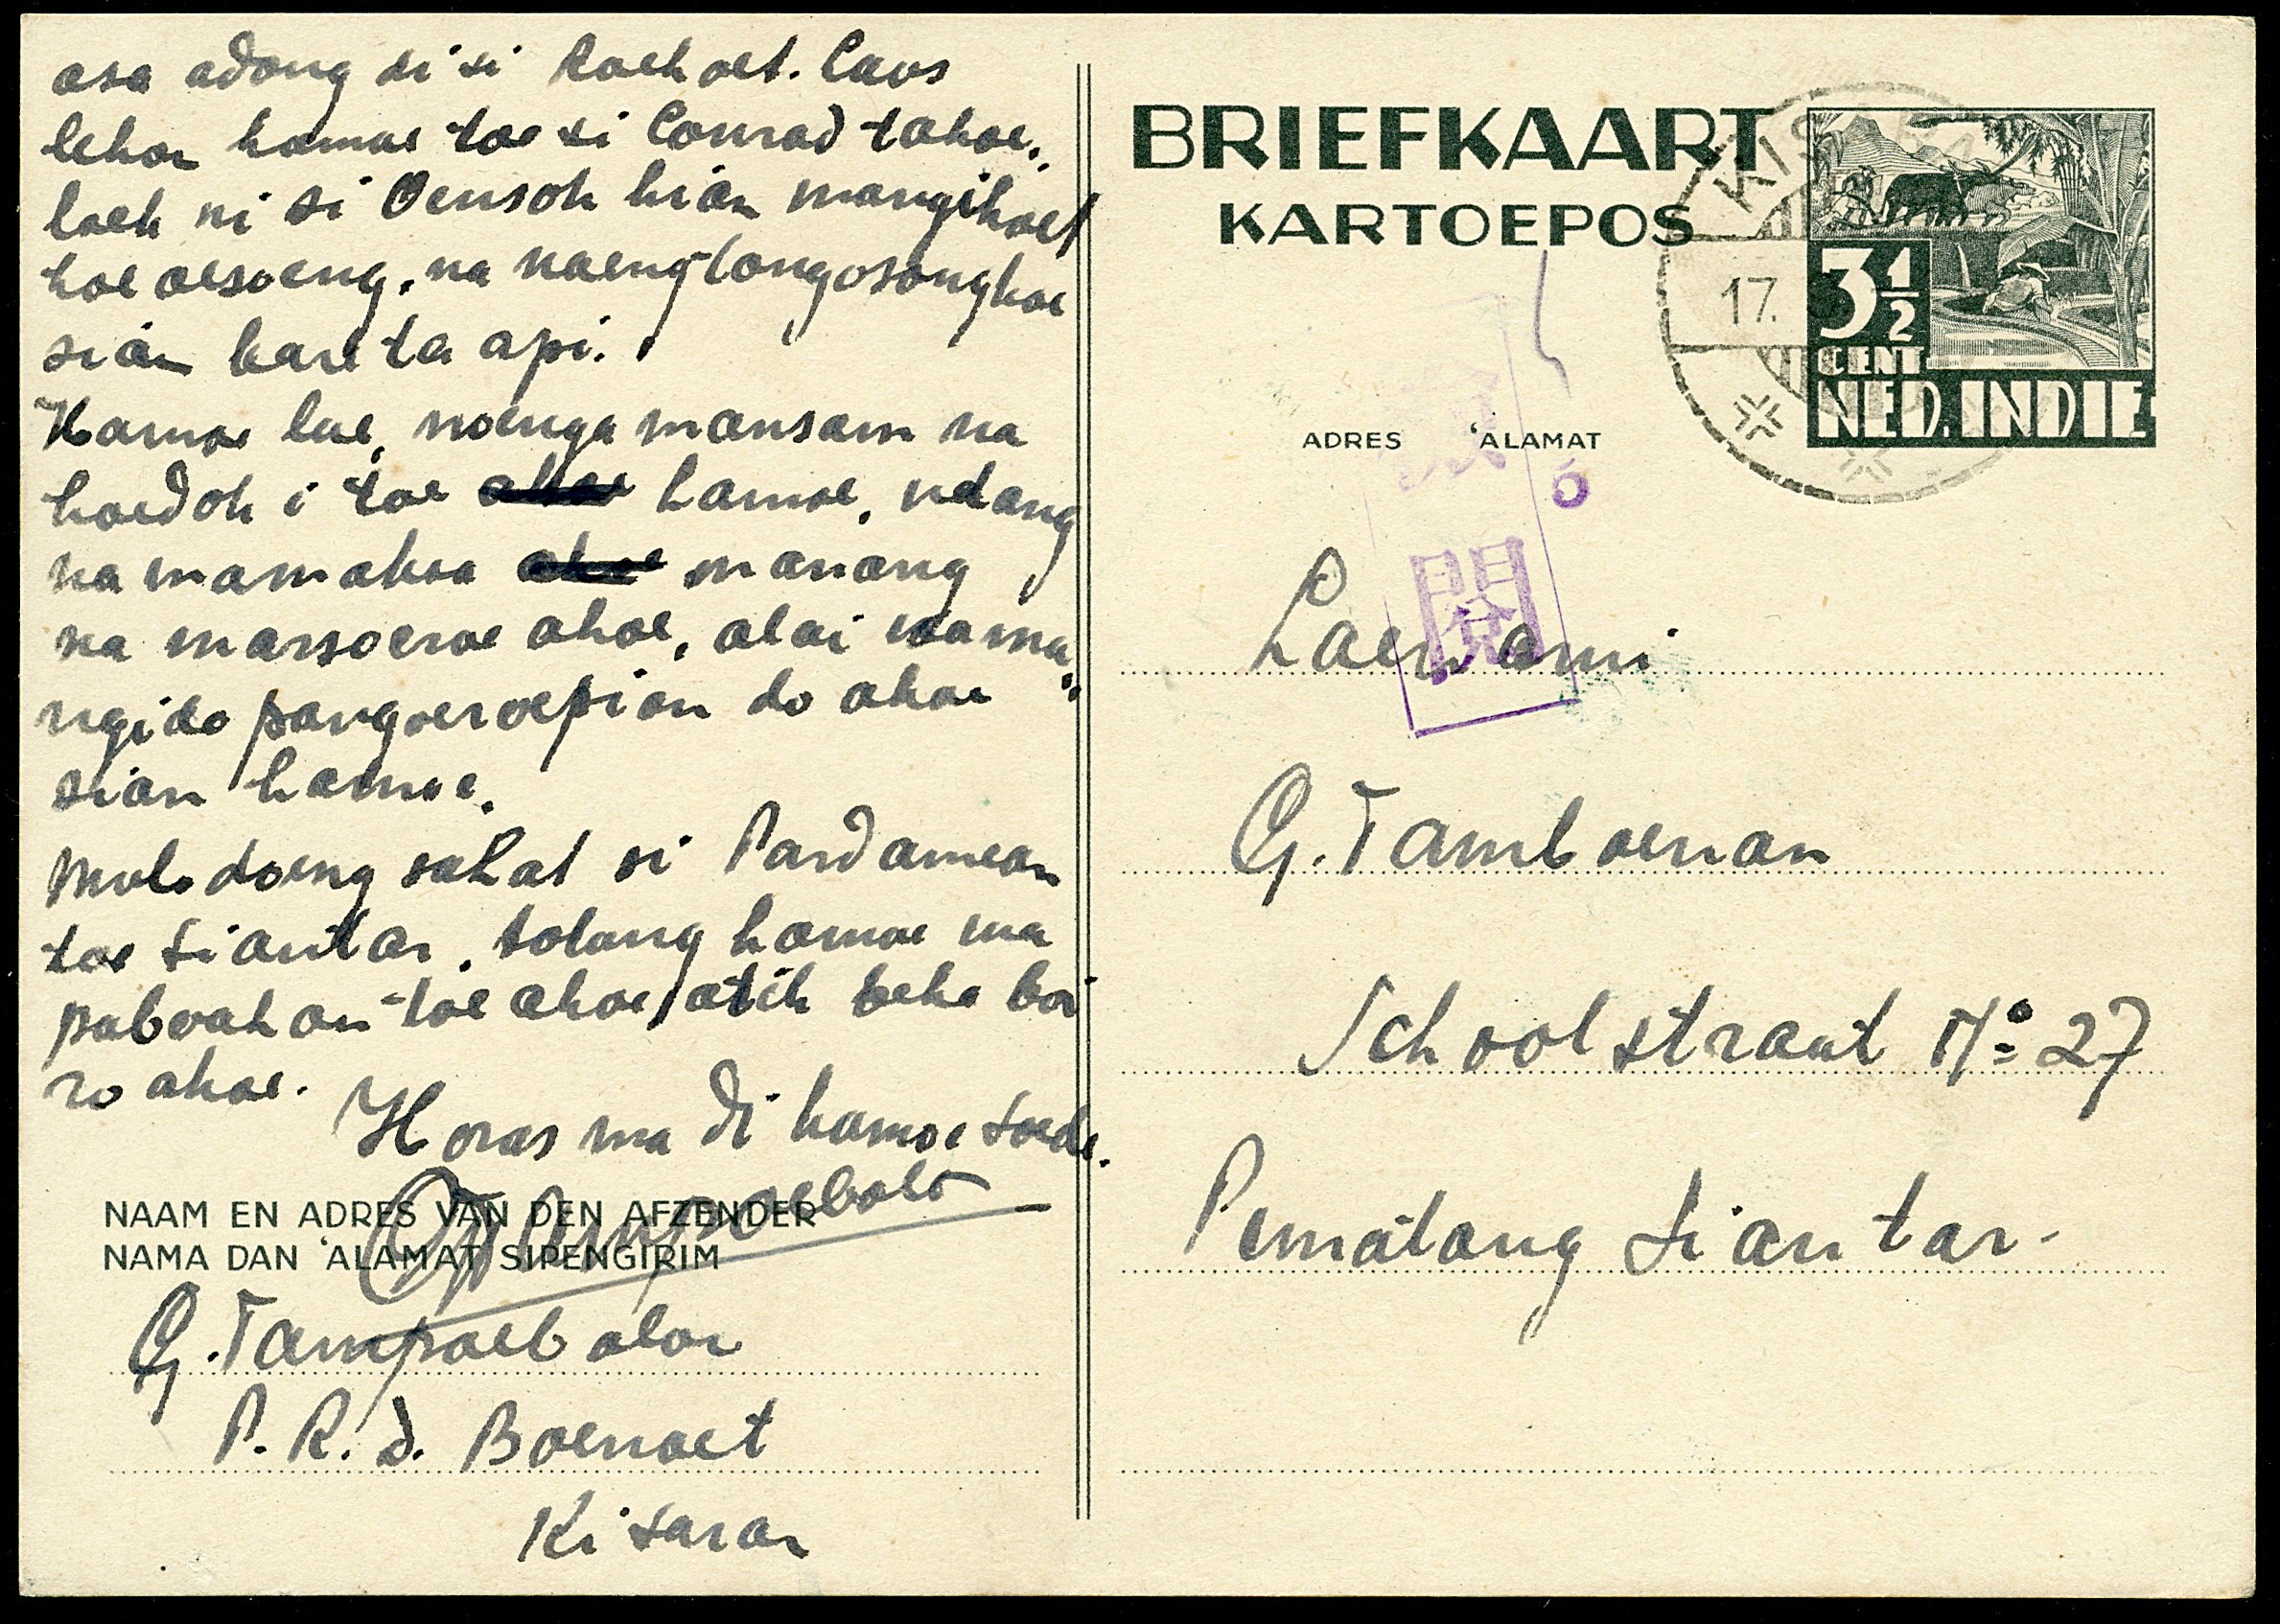 asa adong di si Roehoet. Laos
lehon hamoe toe si Conrad tahoe.
loeh ni si Oensoh hian mangihoet
hoe oesoeng, na naeng longosonghoe
sian hareta api.
Hamoe lae, noenga mansam na
hoedok i toe hamoe, ndang
na mamaksa manang
na marsoeroe ahoe, alai na ma
ngido pangoeroepion do ahoe
sian hamoe.
Molo doeng sahat si Pardamean
toe Siantar, tolong hamoe ma
paboahon toe ahoe, atik beha boi
ro ahoe.
Horas ma di hamoe soede.
Tampoebolo
NAAM EN ADRES VAN DEN AFZENDER
NAMA DAN 'ALAMAT SIPENGIRIM
G. Tampoebolon
P. R. d. Boenoet
Kisaran
BRIEFKAART
KARTOEPOS
KIS
17.
3½
CENT
NED. INDIE
ADRES 'ALAMAT
閲
6
Lae nami
G. Tamboenan
Schoolstraat No 27
Pematang Siantar.